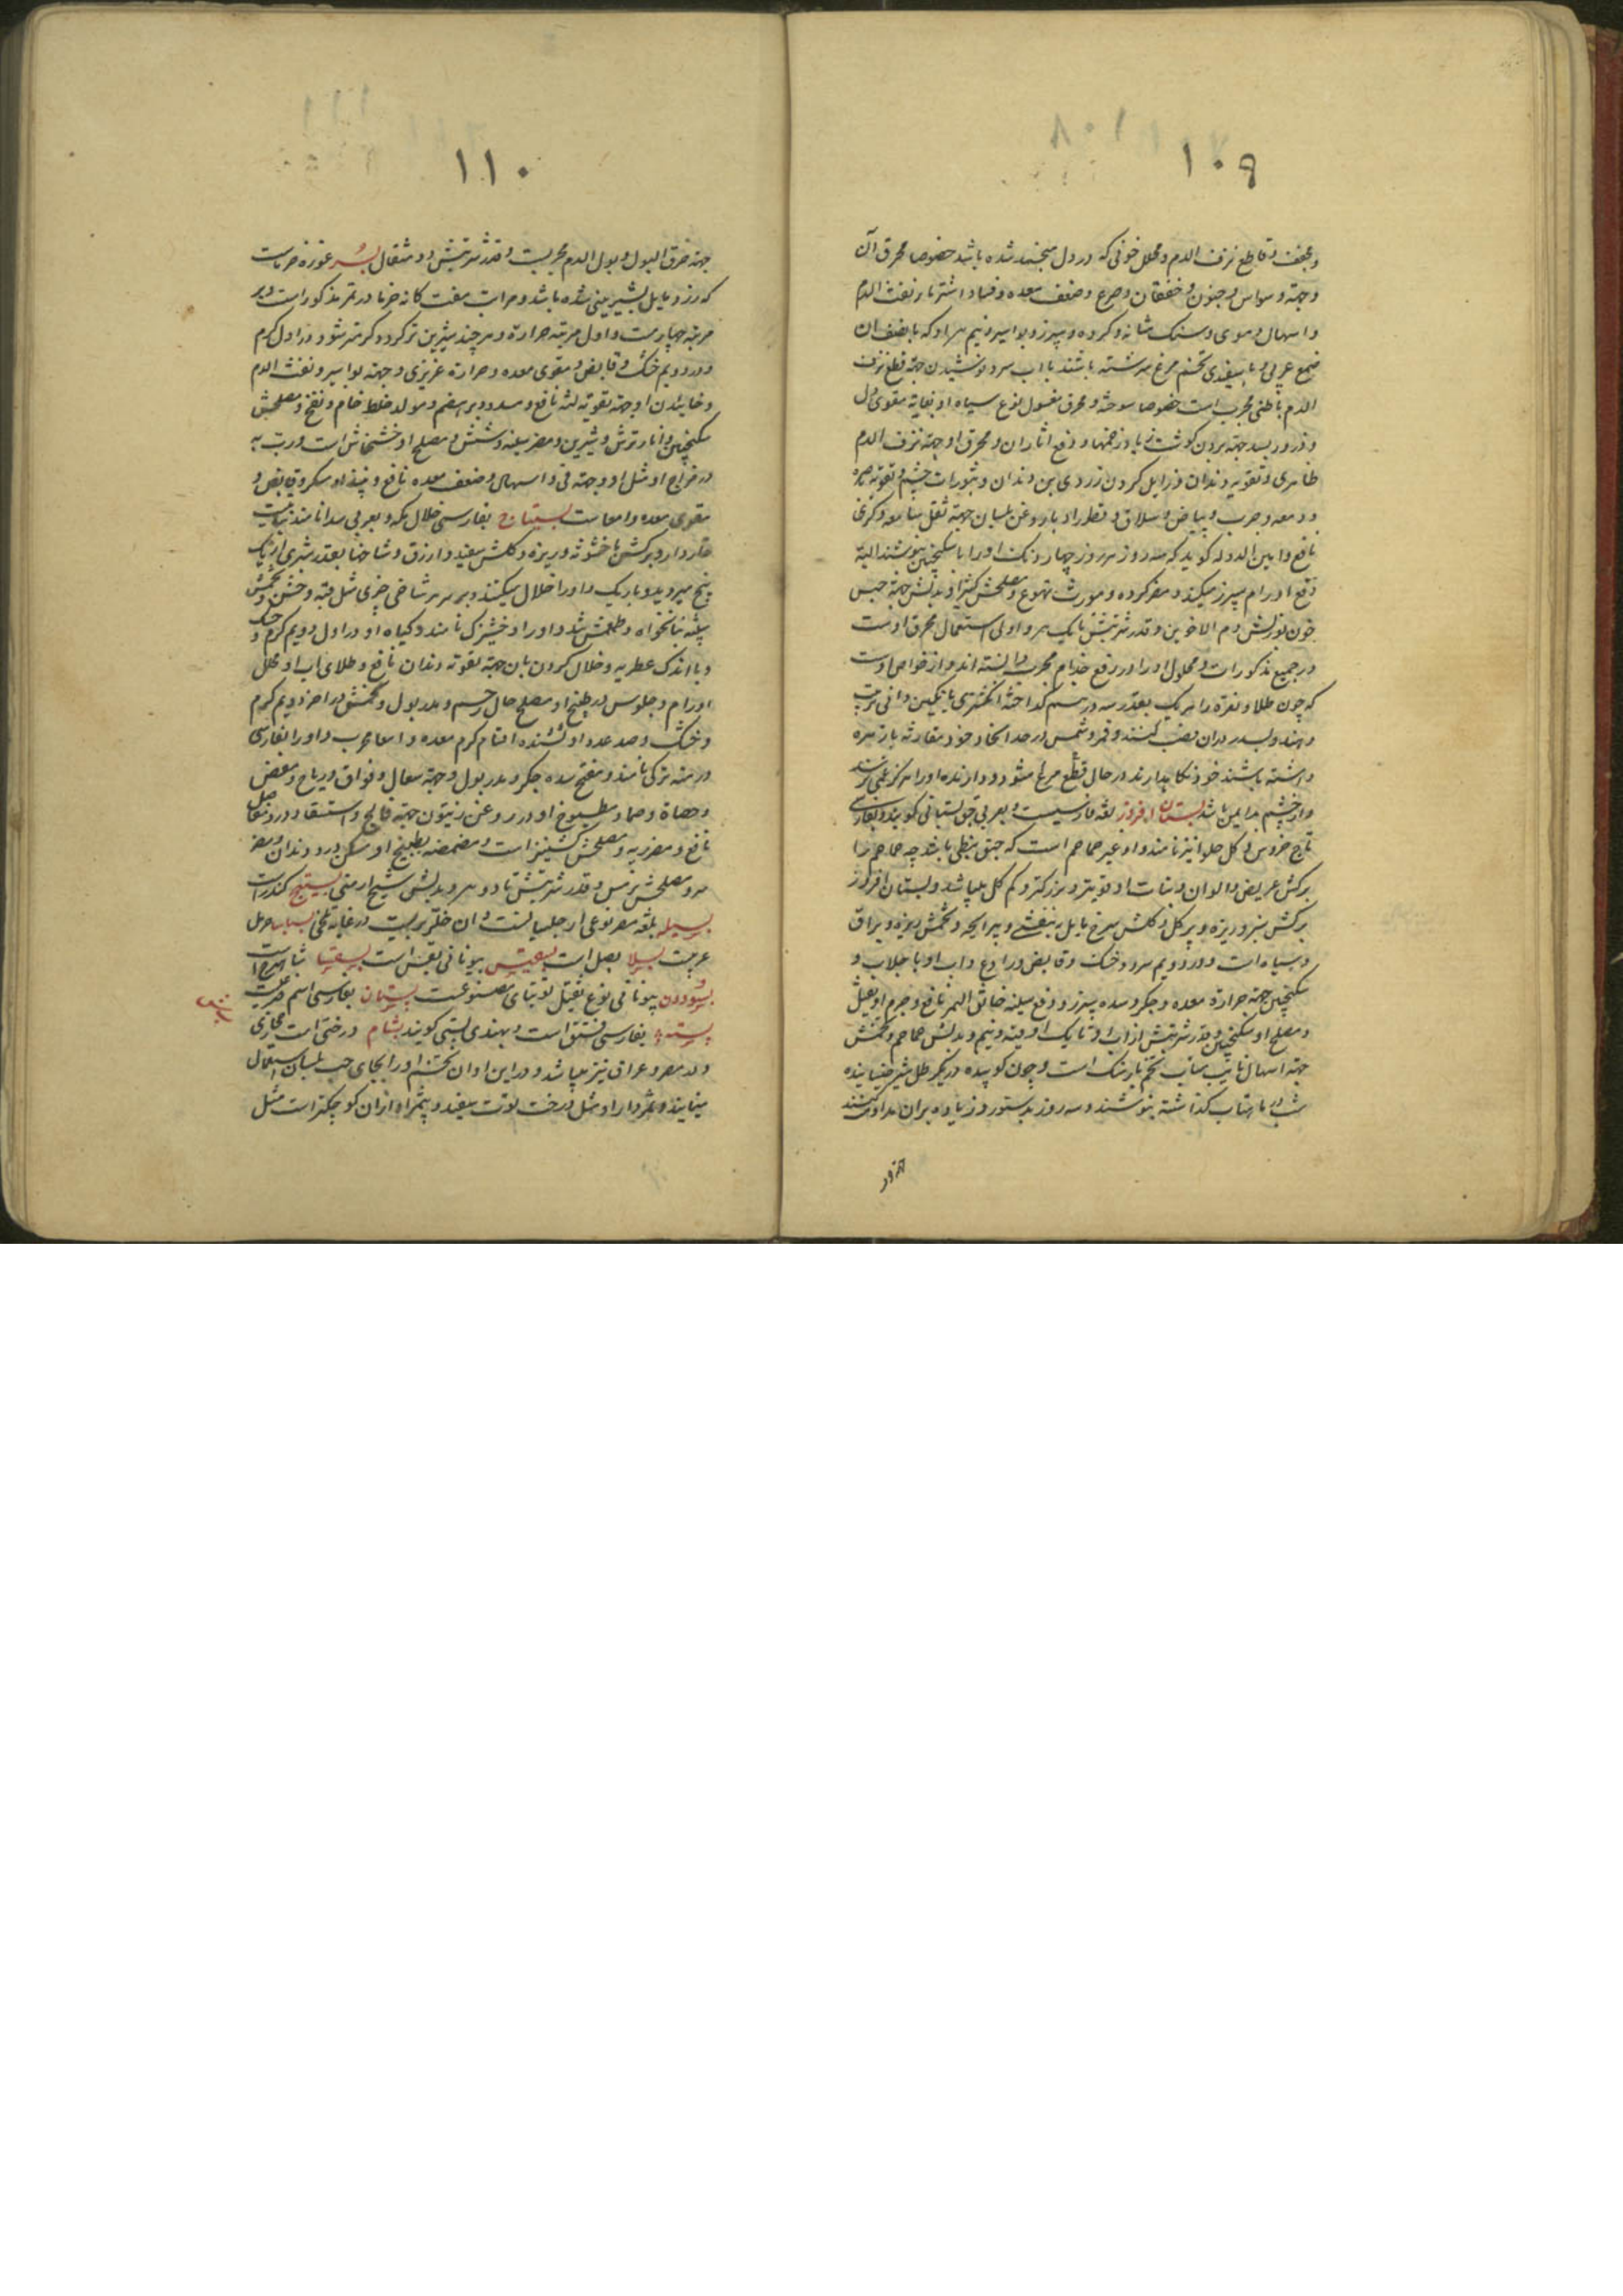 ۱۰۹
و مجفف و قاطع نزف الدم و محلل خونی که در دل منجمد شده باشد خصوصا محرق آن
و جهة وسواس و جنون و خفقان و صرع و ضعف معده و فساد اشتها و نفث الدم
و اسهال دموی و سنک مثانه و کرده و سپرز و بواسیر و نیم مراو که با نصف ان
صمغ عربی و با سفیدی تخم مرغ سرشته باشند با اب سرد نوشیدن جهة قطع نزف
الدم باطنی مجربست خصوصا سوخته و محرق مغسول نوع سیاه او بغایة مقوی دل
و ذرور بسد جهة بردن کوشت زیاد زخمها و رفع اثار ان و محرق او جهة نزف الدم
ظاهری و تقویه دندان و زایل کردن زردی بن دندان و بثورات چشم و تقویة بصره
و دمعه و جرب و بیاض و سلاق و قطور او با روغن بلسان جهة ثقل سامعه و کری
نافع و امین الدوله کوید که سه روز هر روز چهار دانک او را با سکنجبین بنوشند البته
رفع اورام سپرز میکند و مضر کرده و مورث تهوع و مصلحش کتیرا و بدلش جهة حبس
خون بوزنش دم الاخوین و قدر شربتش تا یک درهم و اولی استعمال محرق اوست
در جمیع مذکورات و محلول او را در رفع جذام مجرب دانسته اند و از خواص اوست
که چون طلا و نقره را هر یک بقدر سه درهم کداخته انکشتری با نکین دانی ترتیب
دهند و بسد در ان نصب کنند و قمر و شمس در حد اتحاد خود مقارنه با زهره
داشته باشند خود نکاه دارند در حال قطع صرع میشود و دارنده او را هرکز غمی نرسد
و از چشم بد ایمن باشد بستان افروز لغة فارسیست و بعربی حبق بستانی کویند و بفارسی
تاج خروس و کل حلوا نیز نامند و او غیر حماحم است که حبق نبطی باشد چه حماحم را
برکش عریض و الوان و نبات او قویتر و بزرکتر و کم کل میباشد و بستان افروز
برکش سبز و ریزه و پر کل و کلش سرخ مایل به بنفشی و بیرایحه و تخمش ریزه و براق
و سیاه است و در دویم سرد و خشک و قابض و رادع و اب او با جلاب و
سکنجبین جهة حرارة معده و جکر و سده سپرز و رفع سینه خانق النمر نافع و جرم او ثقیل
و مصلح او سکنجبین و قدر شربتش از اب او تا یک اوقیه و نیم و بدلش حماحم و تخمش
جهة اسهال نایب مناب تخم بارتنک است و چون کوبیده در یکرطل شیر خیسانیده
شب در ماهتاب کذاشته بنوشند و سه روز بدستور روز یاده بران مداومت کنند
۱۱۰
جهة حرق البول و بول الدم مجربست و قدر شربتش دو مثقال بسر غوره خرماست
که زرد و مایل بشیرینی شده باشد و مراتب هفت کانه خرما در تمر مذکور است و بسر
مرتبه چهارمست و اول مرتبه حرارة و هر چند شیرین تر کردد کرمتر شود و در اول کرم
و در دویم خشک و قابض و مقوی معده و حرارة غریزی و جهة بواسیر و نفث الدم
و خاییدن او جهة تقویه لثه نافع و مسدد و دیر هضم و مولد خلط خام و نفخ و مصلحش
سکنجبین و انار ترش و شیرین و مضر سینه و شش و مصلح او خشخاش است و رب به
در مزاج او مثل او و جهة قی و اسهال و ضعف معده نافع و نبیذ او مسکر و قابض و
مقوی معده و امعاست بستناج بفارسی خلال مکه و بعربی سدانامند نباتیست
خاردار و برکش با خشونة و ریزه و کلش سفید و ازرق و شاخها بقدر شبری از یک
بیخ میروید و باریک و او را خلال میکنند و بر سر هر شاخی چیزی مثل قبه و خشن و تخمش
شبیه بنانخواه و طعمش تند و او را دخشیزک نامند و کیاه او در اول دویم کرم و خشک
و با اندک عطریه و خلال کردن بان جهة تقویة دندان نافع و طلای اب او محلل
اورام و جلوس در طبیخ او مصلح حال رحم و مدر بول و تخمش در اخر دویم کرم
و خشک و صد عدد او کشنده اقسام کرم معده و امعا مجرب و او را بفارسی
درمنه ترکی نامند و مفتح سده جکر و مدر بول و جهة سعال و فواق و ریاح و مغص
و حصاة و ضماد مطبوخ او در روغن زیتون جهة فالج و استسقا و درد مفاصل
نافع و مضر ریه و مصلحش کشنیز است و مضمضه بطبیخ او مسکن درد دندان و مضر
سر و مصلحش ترمس و قدر شربتش تا دو درهم و بدلش شیح ارمنی بستیج کندر است
بسیله بلغة مصر نوعی از جلبانست و ان خلر بریست در غایة تلخی بسباسا حرمل
عربیست بسلا بصل است بسقینس بیونانی یقس است بسقینا نبات اذخر است
بسودون بیونانی نوع ثقیل توتیای مصنوعست بستان بفارسی اسم ضرعست
پسته بفارسی فستق است و بهندی پستی کویند بشام درختی است حجازی
و در مصر و عراق نیز میباشد و در این اوان تخم او را بجای حب بلسان استعمال
مینمایند و ثمردار او مثل درخت توت سفید و بیثمر او از ان کوچکتر است مثل